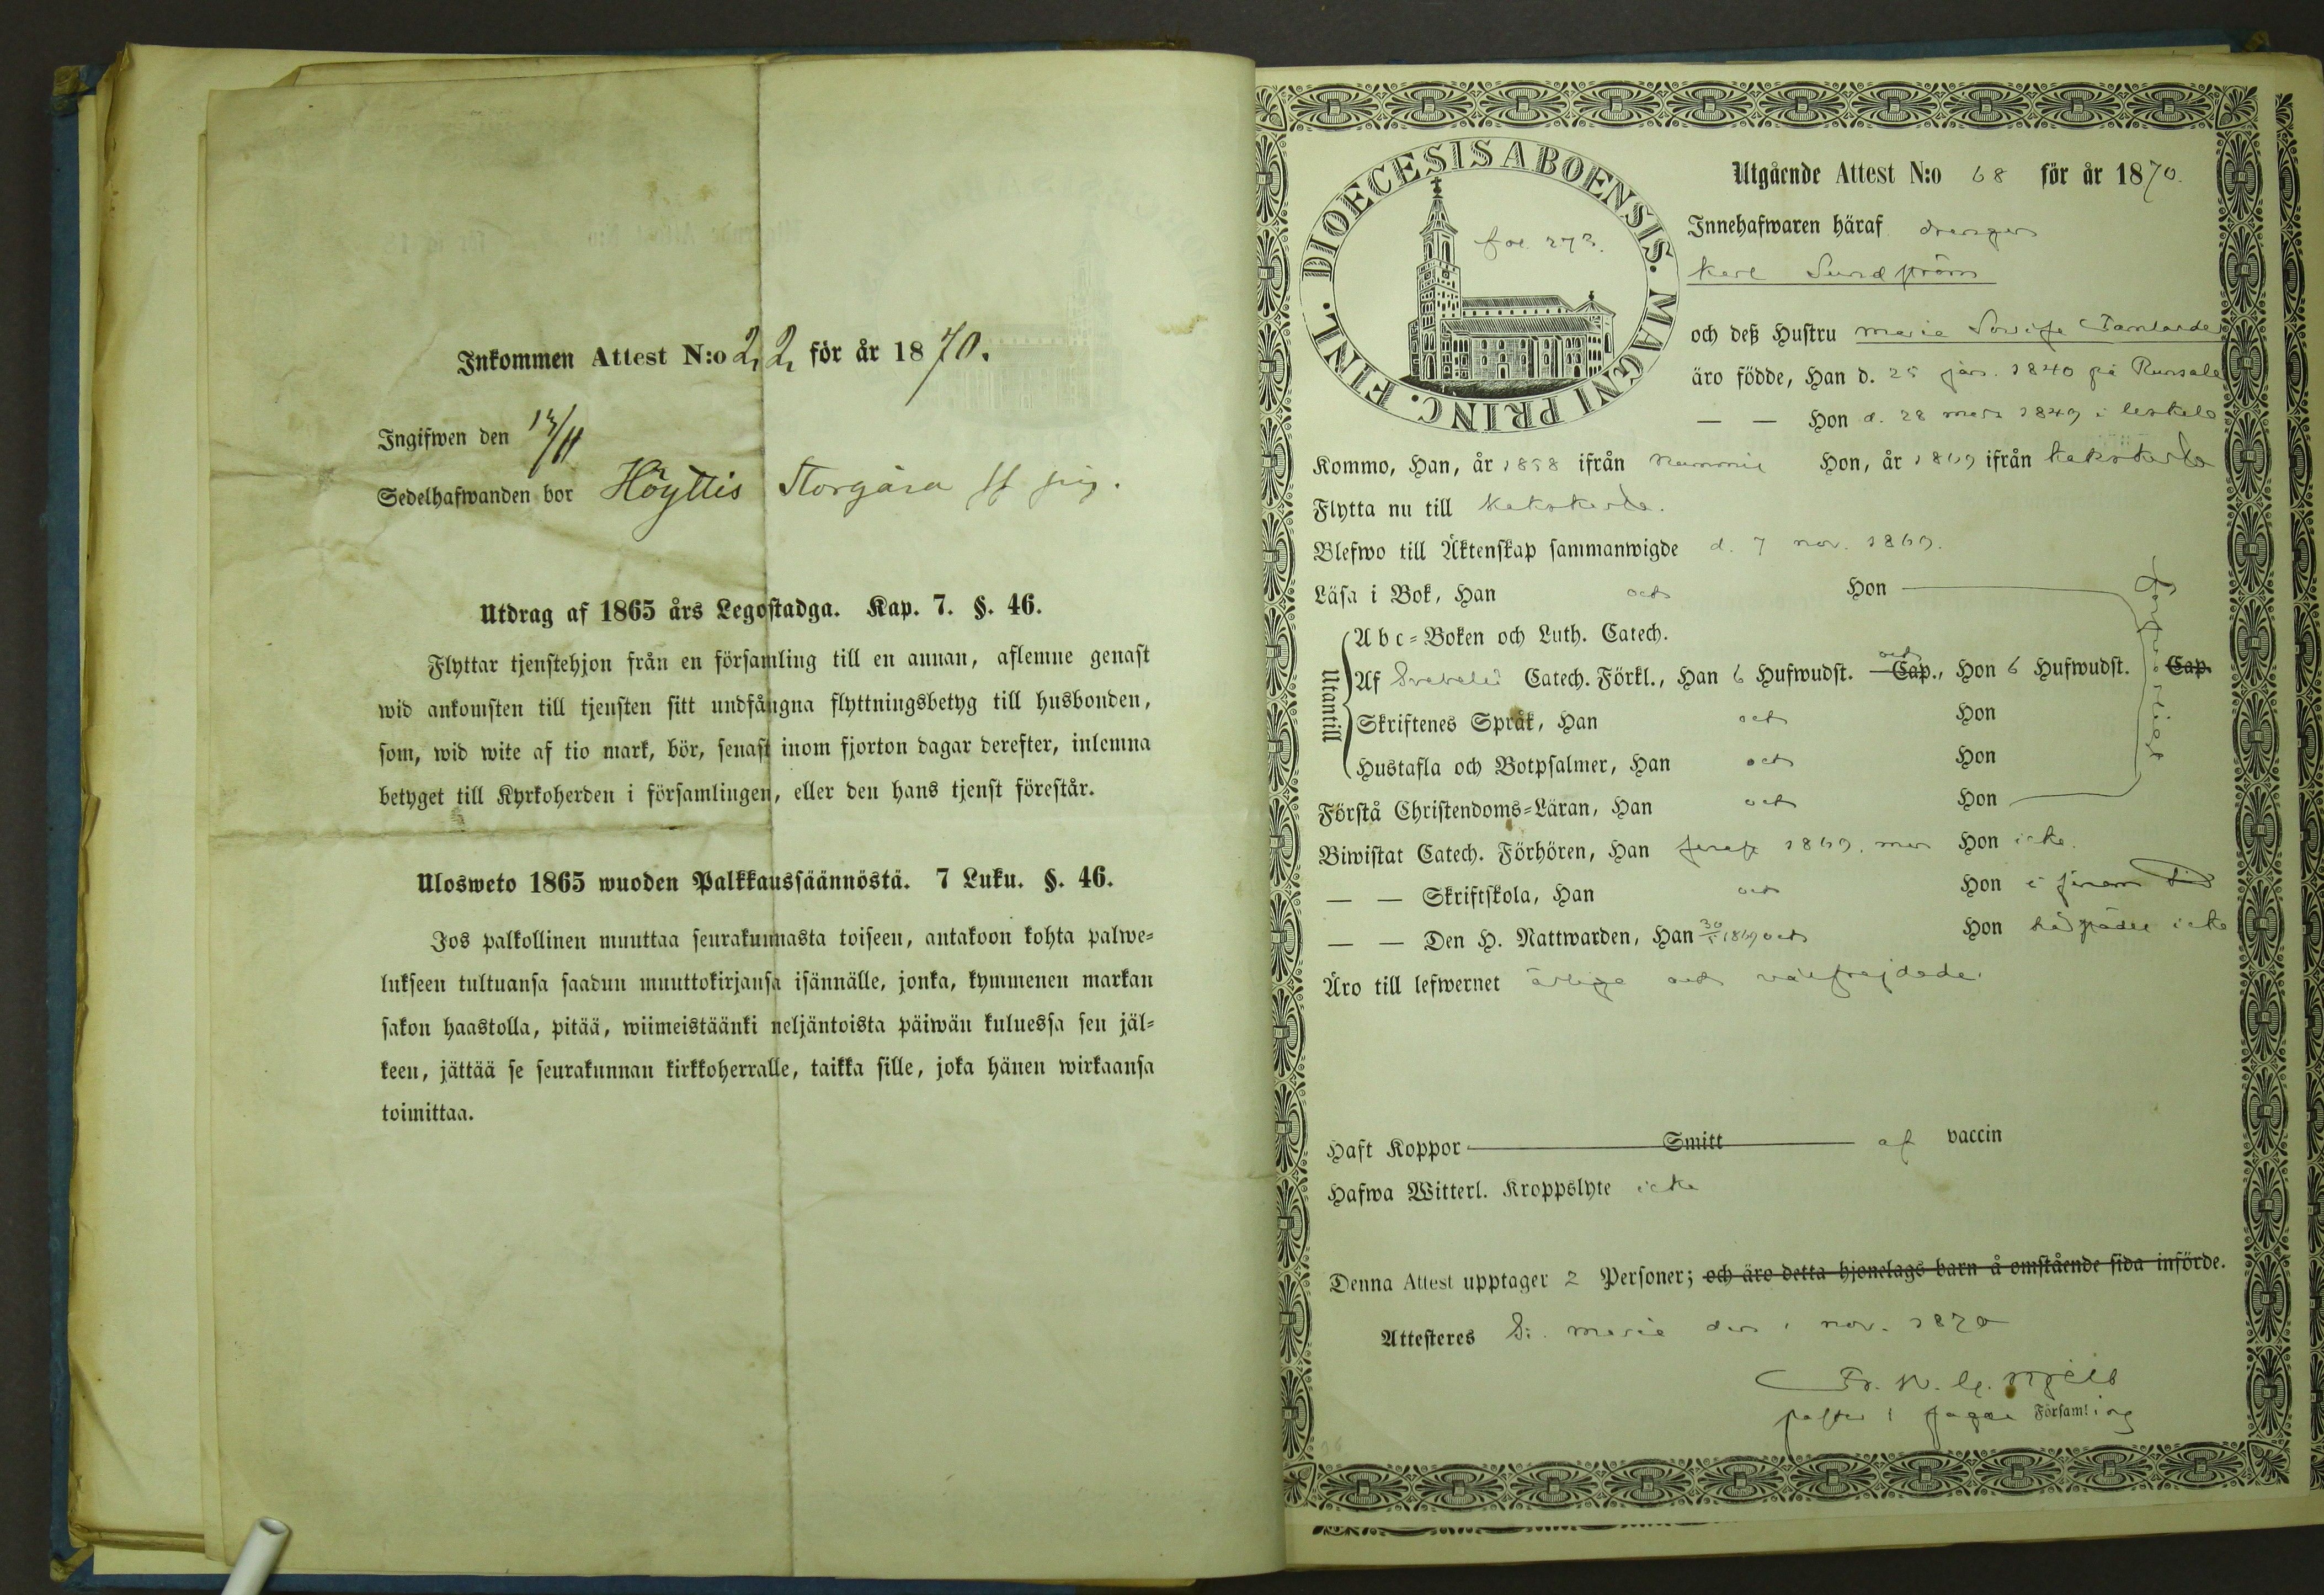 Inkommen Attest N:o 22 för år 1870.
Ingifwen den 13/11
Sedelhafwanden bor Höyttis Storgård
Utdrag af 1865 års Legostadga. Kap. 7. §. 46.
Flyttar tjenstehjon från en församling till en annan, aflemne genast
wid ankomsten till tjensten sitt undfångna flyttningsbetyg till husbonden,
som, wid wite af tio mark, bör, senast inom fjorton dagar derefter, inlemna
betyget till Kyrkoherden i församlingen, eller den hans tjenst förestår.
Ulosweto 1865 wuoden Palkkaussäännöstä. 7 Luku. §. 46.
Jos palkollinen muuttaa seurakunnasta toiseen, antakoon kohta palwe-
lukseen tultuansa saadun muuttokirjansa isännälle, jonka, kymmenen markan
sakon haastolla, pitää, wiimeistäänki neljäntoista päiwän kuluessa sen jäl-
keen, jättää se seurakunnan kirkkoherralle, taikka sille, joka hänen wirkaansa
toimittaa.
DIOECESIS ABOENSIS. MAGNI PRINC. FINL.
fol. 273.
Utgående Attest N:o 68 för år 1870.
Innehafwaren häraf drengen
Karl Sundström
och deß Hustru Maria Lovisa
äro födde, Han d. 25 jan. 1840 på Runsala
— — Hon d. 28 mars 1849 i
Kommo, Han, år 1858 ifrån Nummis Hon, år 1869 ifrån Kakskerta
Flytta nu till Kakskerta.
Blefwo till Äktenskap sammanwigde d. 7 nov. 1869.
Läsa i Bok, Han och Hon
Utantill
Abc-Boken och Luth. Catech.
Af Svebelii Catech. Förkl., Han 6 Hufwudst. och Cap., Hon 6 Hufwudst. Cap.
Skriftenes Språk, Han och Hon
Hustafla och Botpsalmer, Han och Hon
Förstå Christendoms-Läran, Han och Hon
Biwistat Catech. Förhören, Han senast 1869. men Hon icke.
— — Skriftskola, Han och Hon i sinom tid
— — Den H. Nattwarden, Han 30/5 1869 och Hon icke
Äro till lefwernet ärliga och välfrejdade.
Haft Koppor Smitt af vaccin
Hafwa Witterl. Kroppslyte icke
Denna Attest upptager 2 Personer; och äro detta hjonelags barn å omstående sida införde.
Attesteras S:t Marie den 1 nov. 1870
pastor i Församling